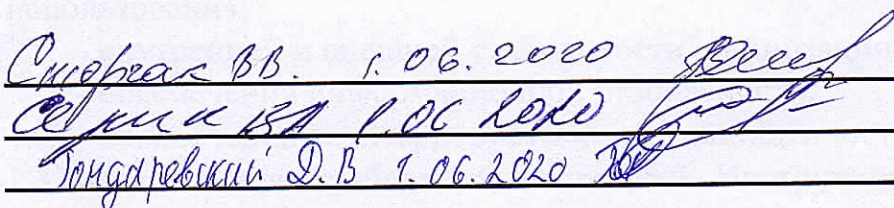 Сморгак В.В. 1.06.2020
Серик ВА 1.06 2020
Гондаревский Д.В 1.06.2020